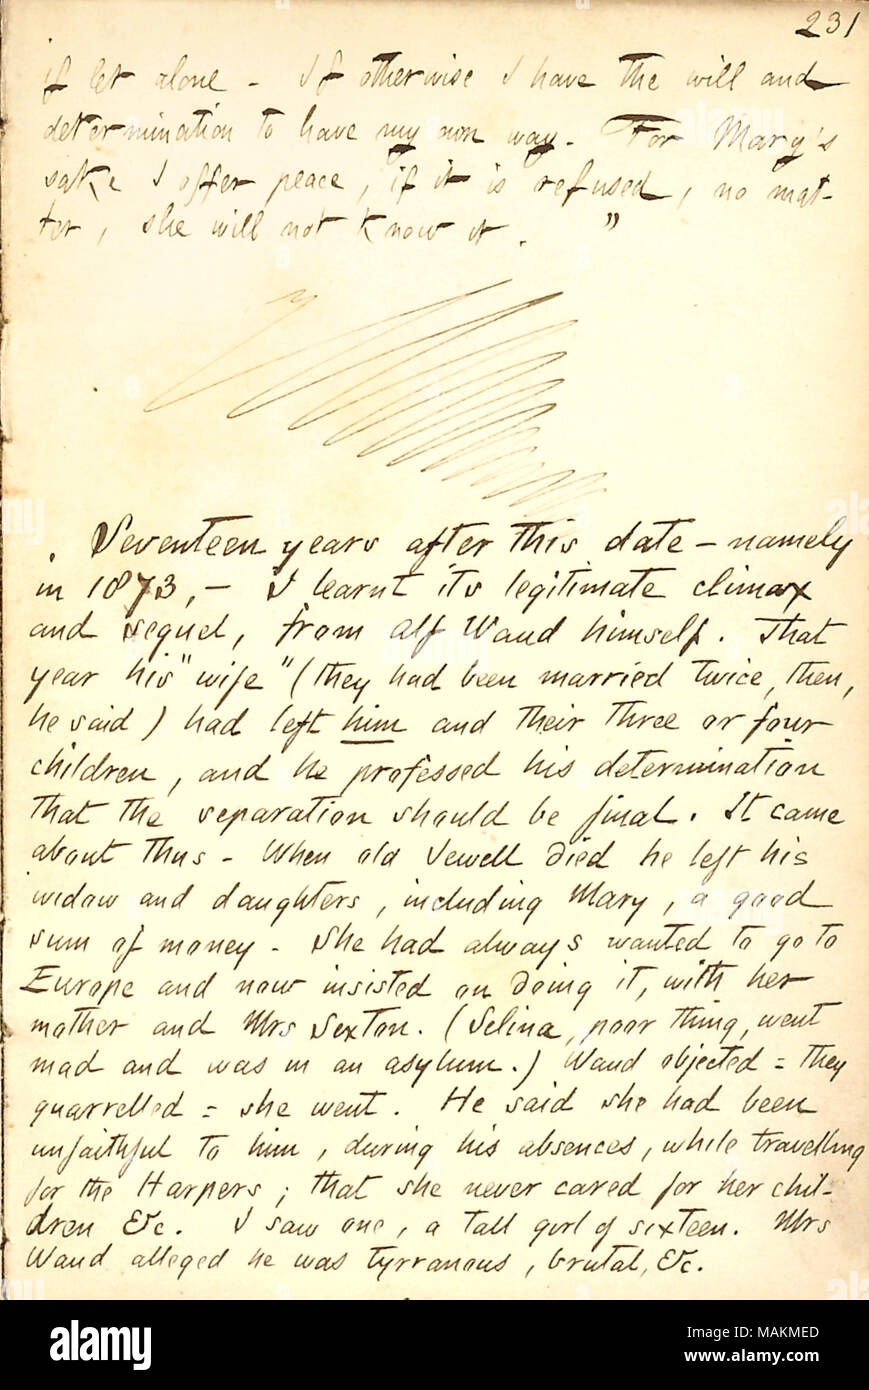 231
if let alone - If otherwise I have the will and
determination to have my own way. For Mary's
sake I offer peace, if it is refused, no mat-
ter, she will not know it. "
. Seventeen years after this date - namely
in 1873, - I learnt its legitimate climax
and sequel, from Alf Waud himself. That
year his "wife" (they had been married twice, then,
he said) had left him and their three or four
children, and he professed his determination
that the separation should be final. It came
about thus - When old Jewell died he left his
widow and daughters, including Mary, a good
sum of money. She had always wanted to go to
Europe and now insisted on doing it, with her
mother and Mrs Sexton. (Selina, poor thing, went
mad and was in an asylum.) Waud objected = they
quarrelled = she went. He said she had been
unfaithful to him, during his absences, while travelling
for the Harpers; that she never cared for her chil-
dren &c. I saw one, a tall girl of sixteen. Mrs
Waud alleged he was tyrranous, brutal, &c.
alamy
Image ID: MAKMED
www.alamy.com